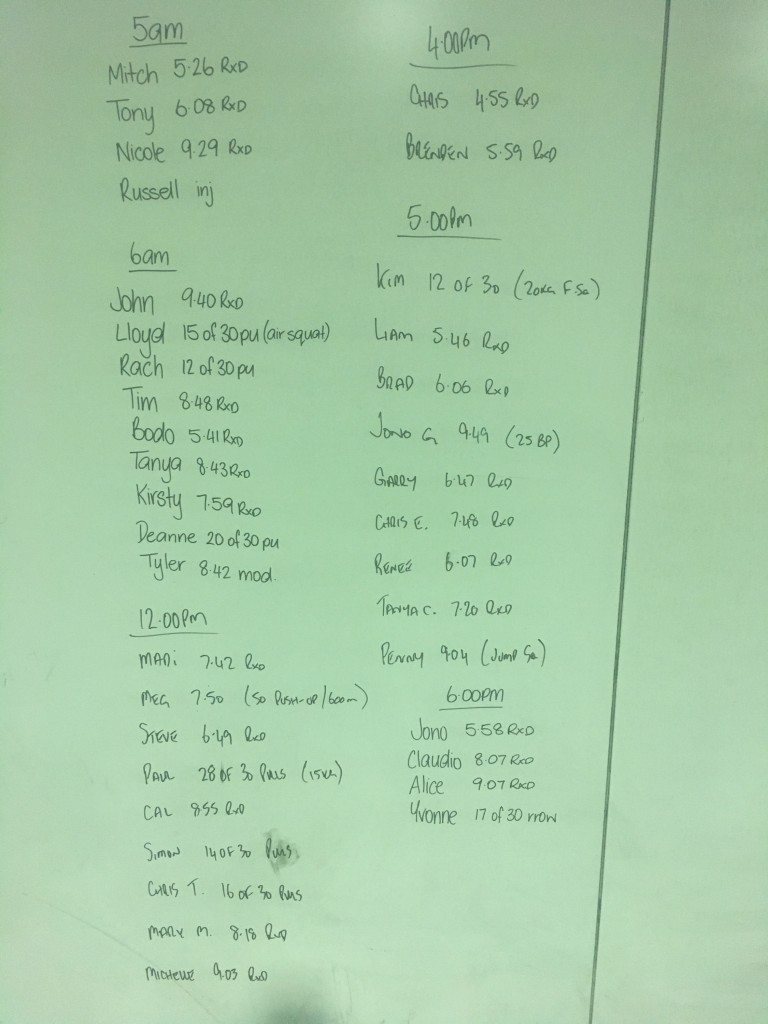 5am
Mitch 5.26 RxD
Tony 6.08 RxD
Nicole 9.29 RxD
Russell inj
6am
John 9.40 RxD
Lloyd 15 of 30pu (air squat)
Rach 12 of 30 pu
Tim 8.48 RxD
Bodo 5.41 RxD
Tanya 8.43 RxD
Kirsty 7.59 RxD
Deanne 20 of 30 pu
Tyler 8.42 mod.
12.00pm
MADi 7.42 RxD
MEG 7.50 (50 PUSH-UP/600m)
STEVE 6.49 RxD
PAUL 28 OF 30 PULLS (15KG)
CAL 8.55 RxD
SIMON 14 OF 30 PULLS
CHRIS T. 16 OF 30 PULLS
MARK M. 8.18 RxD
MICHELLE 9.03 RxD
4.00pm
CHRIS 4.55 RxD
BRENDEN 5.59 RxD
5.00pm
KIM 12 OF 30 (20KG F.SQ)
LIAM 5.46 RxD
BRAD 6.06 RxD
JONO G 9.49 (25 BP)
GARRY 6.47 RxD
CHRIS E. 7.48 RxD
RENEÉ 6.07 RxD
TANYA C. 7.20 RxD
PENNY 9.04 (JUMP SQ)
6.00pm
Jono 5.58 RxD
Claudio 8.07 RxD
Alice 9.07 RxD
Yvonne 17 of 30 rrow